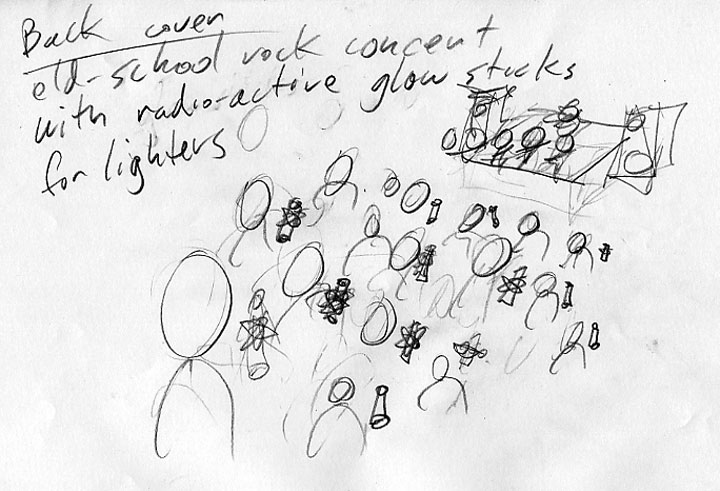 Back cover
old-school rock concert
with radio-active glow sticks
for lighters